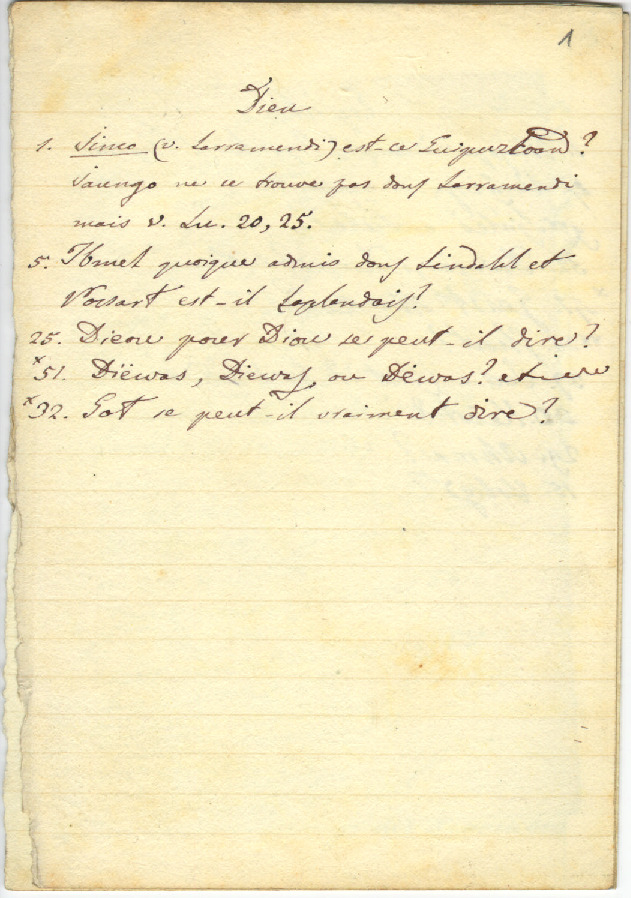 1
Dieu
1. Jinco (v. Larramendi) est-ce Guipuzcoan?
Jaungo ne se trouve pas dans Larramendi
mais v. Lu. 20, 25.
5. Ibmel quoique admis dans Lindahl et
est-il Laplandais?
25. Dieou pour Diou se peut-il dire?
x51. Diëwas, Diewas, ou Dëwas? et
x32. Got se peut-il vraiment dire?